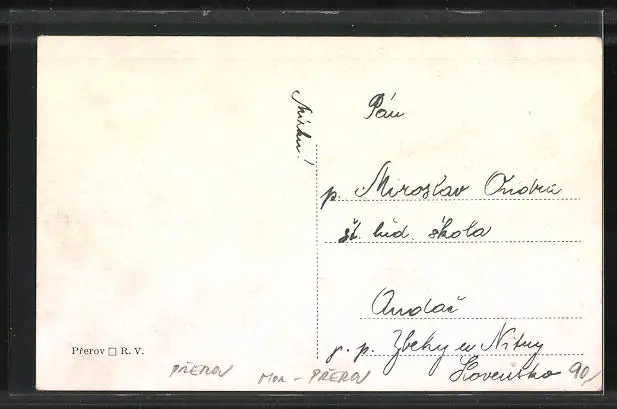 Mirku!
Pán
p. Miroslav Ondru
št. lid. škola
Andač
p. p. Zbehy u Nitry
Slovensko
90/
Přerov □ R. V.
PŘEROV
MOR - PŘEROV